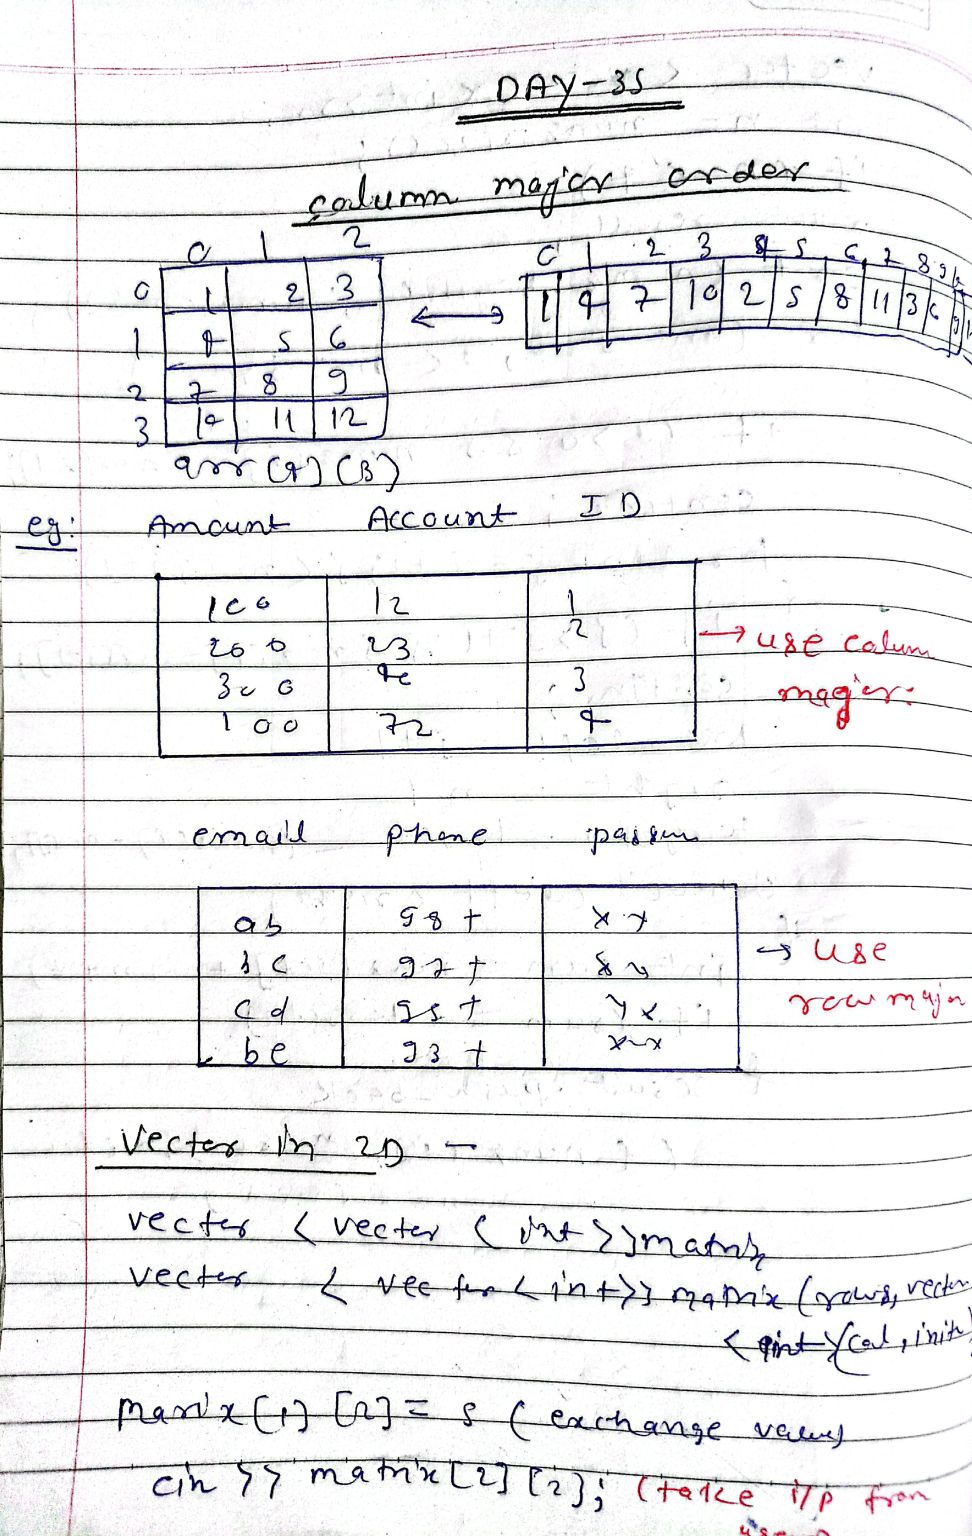 DAY-35
column major order
0 1 2
0 1 2 3
1 4 5 6
2 7 8 9
3 10 11 12
arr (4) (3)
0 1 2 3 4 5 6 7 8 9
1 4 7 10 2 5 8 11 3 6 9
eg: Amount Account ID
100 12 1
200 23 2
300 40 3
100 72 4
→ use colum
major.
email phone
ab 98+ xy
bc 97+
cd 95+ yx
be 93+ x-x
→ use
row major
Vector in 2D -
vector < vector < int >> matrix
vector < vector < int >> matrix (rows, vector
< int > (col, initi
matrix [1] [2] = 5 ( exchange value)
cin >> matrix [2] [2]; (take i/p from
user